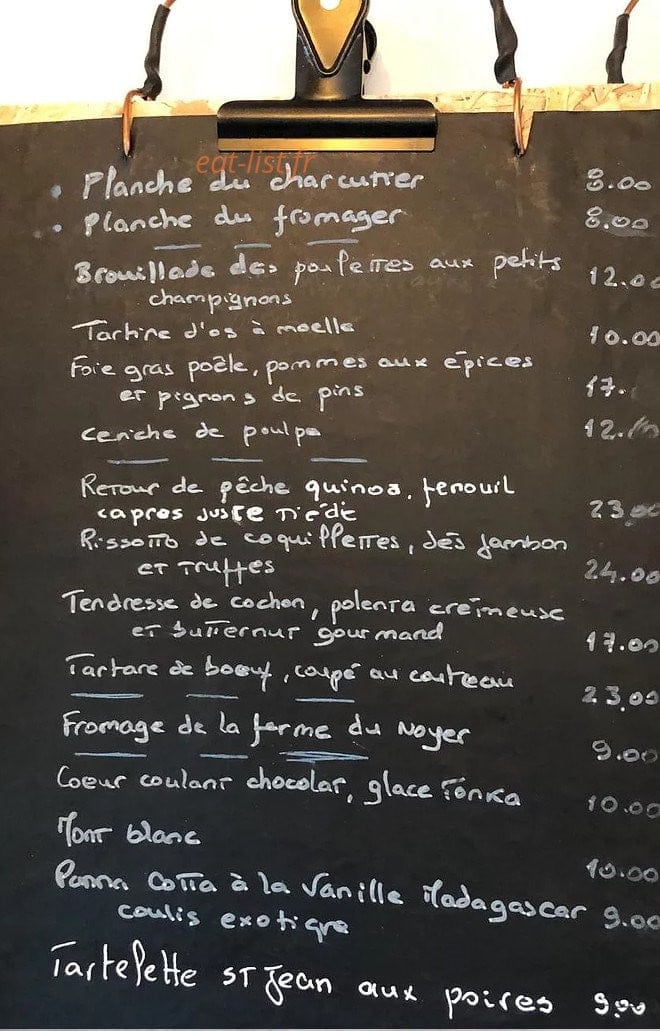 eat-list.fr
• Planche du charcutier 8.00
• Planche du fromager 8.00
Brouillade des poulettes aux petits
champignons 12.00
Tartine d'os à moelle 10.00
Foie gras poêlé, pommes aux épices
et pignons de pins 17.
Ceviche de poulpe 12.
Retour de pêche quinoa, fenouil
capres juste tiède 23.00
Rissotto de coquillettes, dés jambon
et truffes 24.00
Tendresse de cochon, polenta crémeuse
et butternut gourmand 17.00
Tartare de boeuf, coupé au couteau 23,00
Fromage de la ferme du Noyer 9.00
Coeur coulant chocolat, glace Tonka 10.00
Mont blanc 10.00
Panna Cotta à la Vanille Madagascar 9.00
coulis exotique
Tartelette st Jean aux poires 9.00